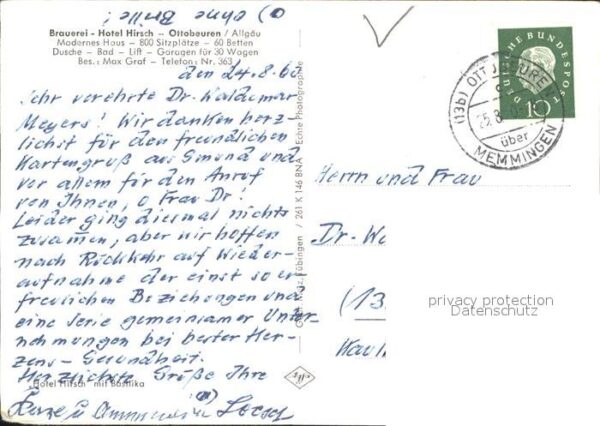 o) ohne Brille!
Brauerei - Hotel Hirsch - Ottobeuren / Allgäu
Modernes Haus — 800 Sitzplätze — 60 Betten
Dusche — Bad — Lift — Garagen für 30 Wagen
Bes.: Max Graf — Telefon: Nr. 363
den 24.8.60
Sehr verehrte Dr. Waldemar
Meyers! Wir danken herz-
lichst für den freundlichen
Kartengruß aus Gmünd und
vor allem für den Anruf
von Ihnen, o Frau Dr!
Leider ging diesmal nichts
zusammen, aber wir hoffen
nach Rückkehr auf Wieder-
aufnahme der einst so er-
freulichen Beziehungen und
eine Serie gemeinsamer Unter-
nehmungen bei bester Her-
zens-Gesundheit.
Herzlichste Grüße Ihre
"Hotel Hirsch" mit Basilika
Echte Photographie
/ 261 K 146 BNA
Tübingen
DEUTSCHE BUNDESPOST
10
(13b) OTTOBEUREN
25.8.
über
MEMMINGEN
Herrn und Frau
Dr. Wa
(13
privacy protection
Datenschutz